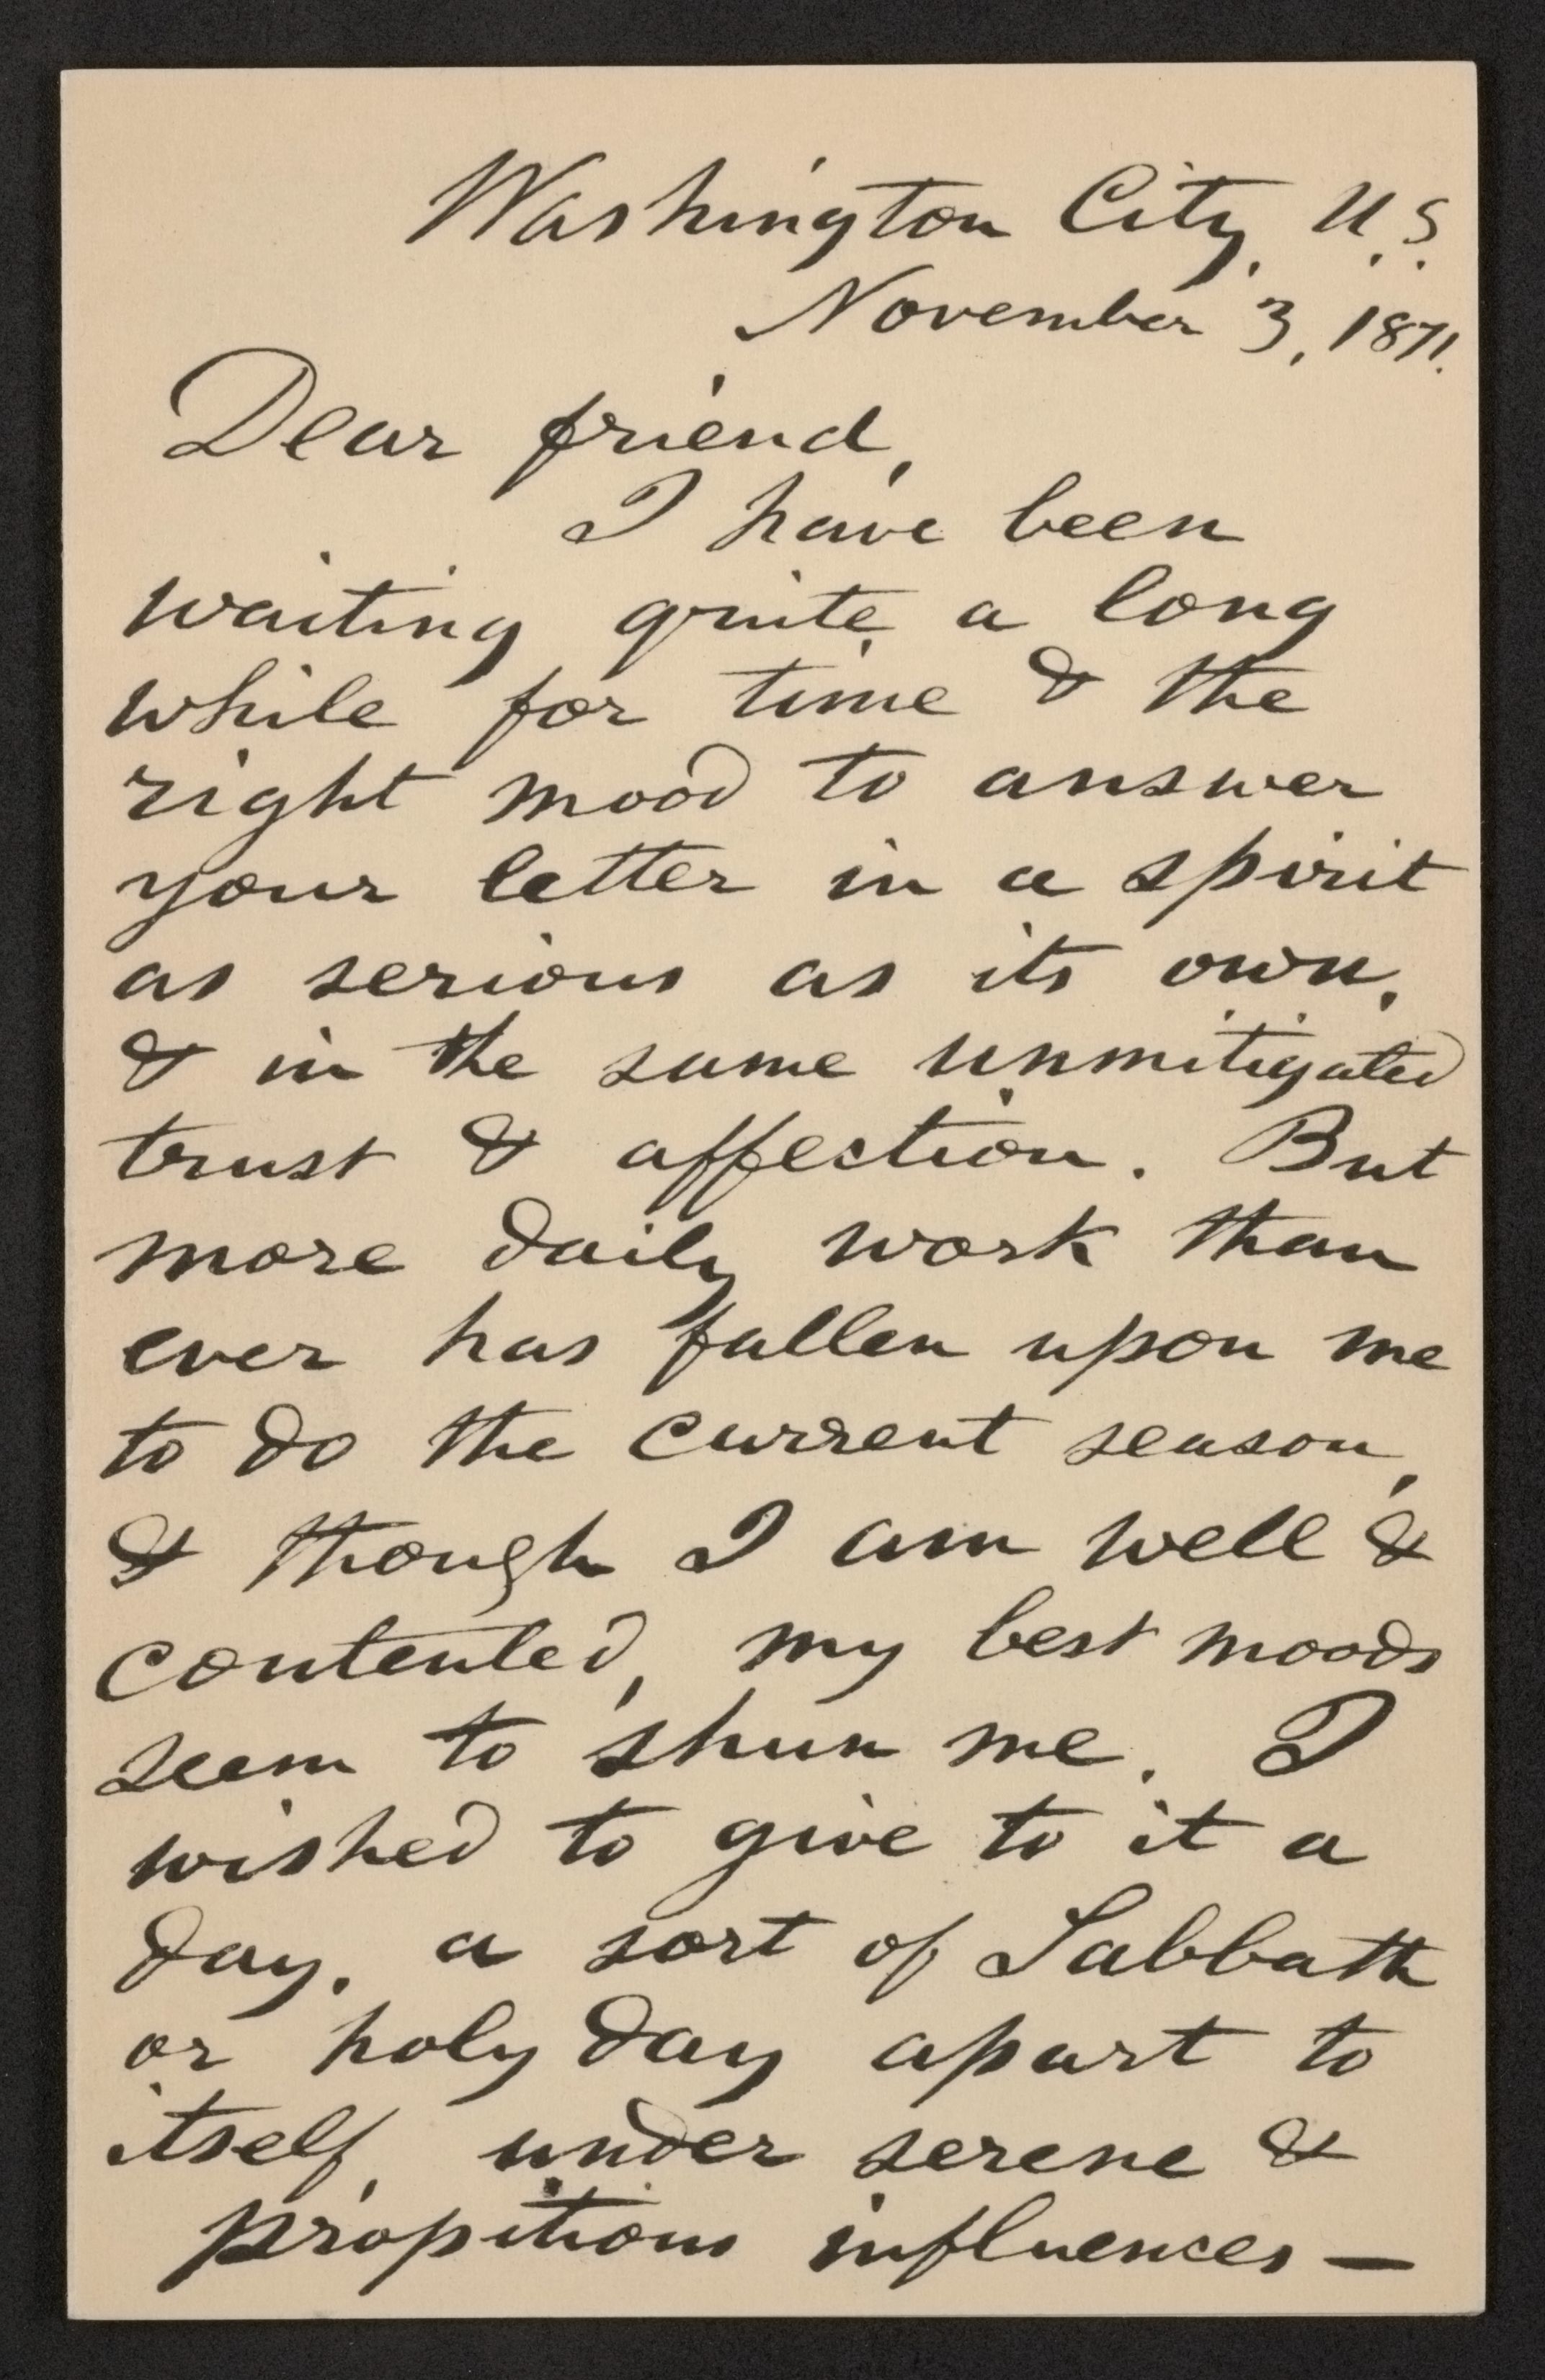 Washington City, U.S.
November 3, 1871.
Dear friend,
I have been
waiting quite a long
while for time & the
right mood to answer
your letter in a spirit
as serious as its own,
& in the same unmitigated
trust & affection. But
more daily work than
ever has fallen upon me
to do the current season,
& though I am well &
contented, my best moods
seem to shun me. I
wished to give to it a
day, a sort of Sabbath
or holy day apart to
itself, under serene &
propitious influences —